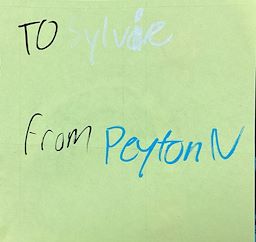 TO Sylvie
From Peyton N